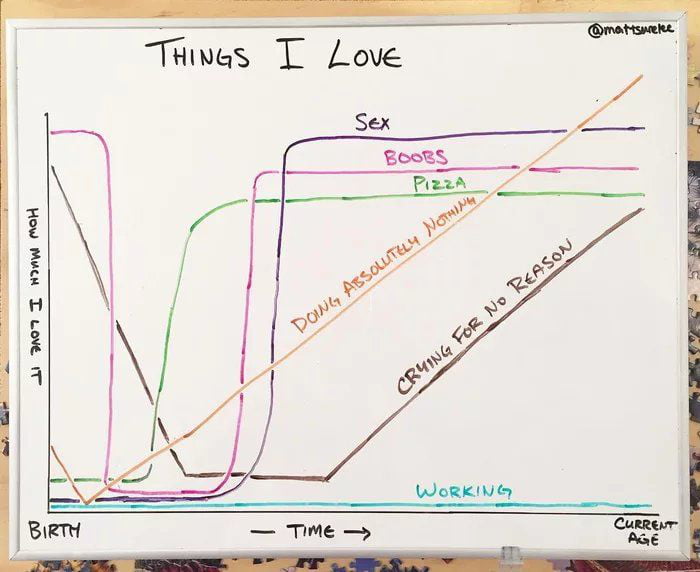 @mattsurelee
THINGS I LOVE
SEX
BOOBS
PIZZA
DOING ABSOLUTELY NOTHING
CRYING FOR NO REASON
WORKING
HOW MUCH I LOVE IT
BIRTH
— TIME →
CURRENT
AGE